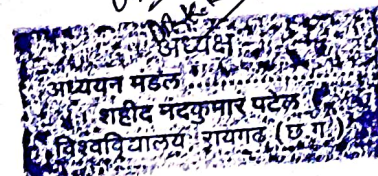 अध्यक्ष
अध्ययन मंडल
शहीद नंदकुमार पटेल
विश्वविद्यालय रायगढ़ (छ.ग.)